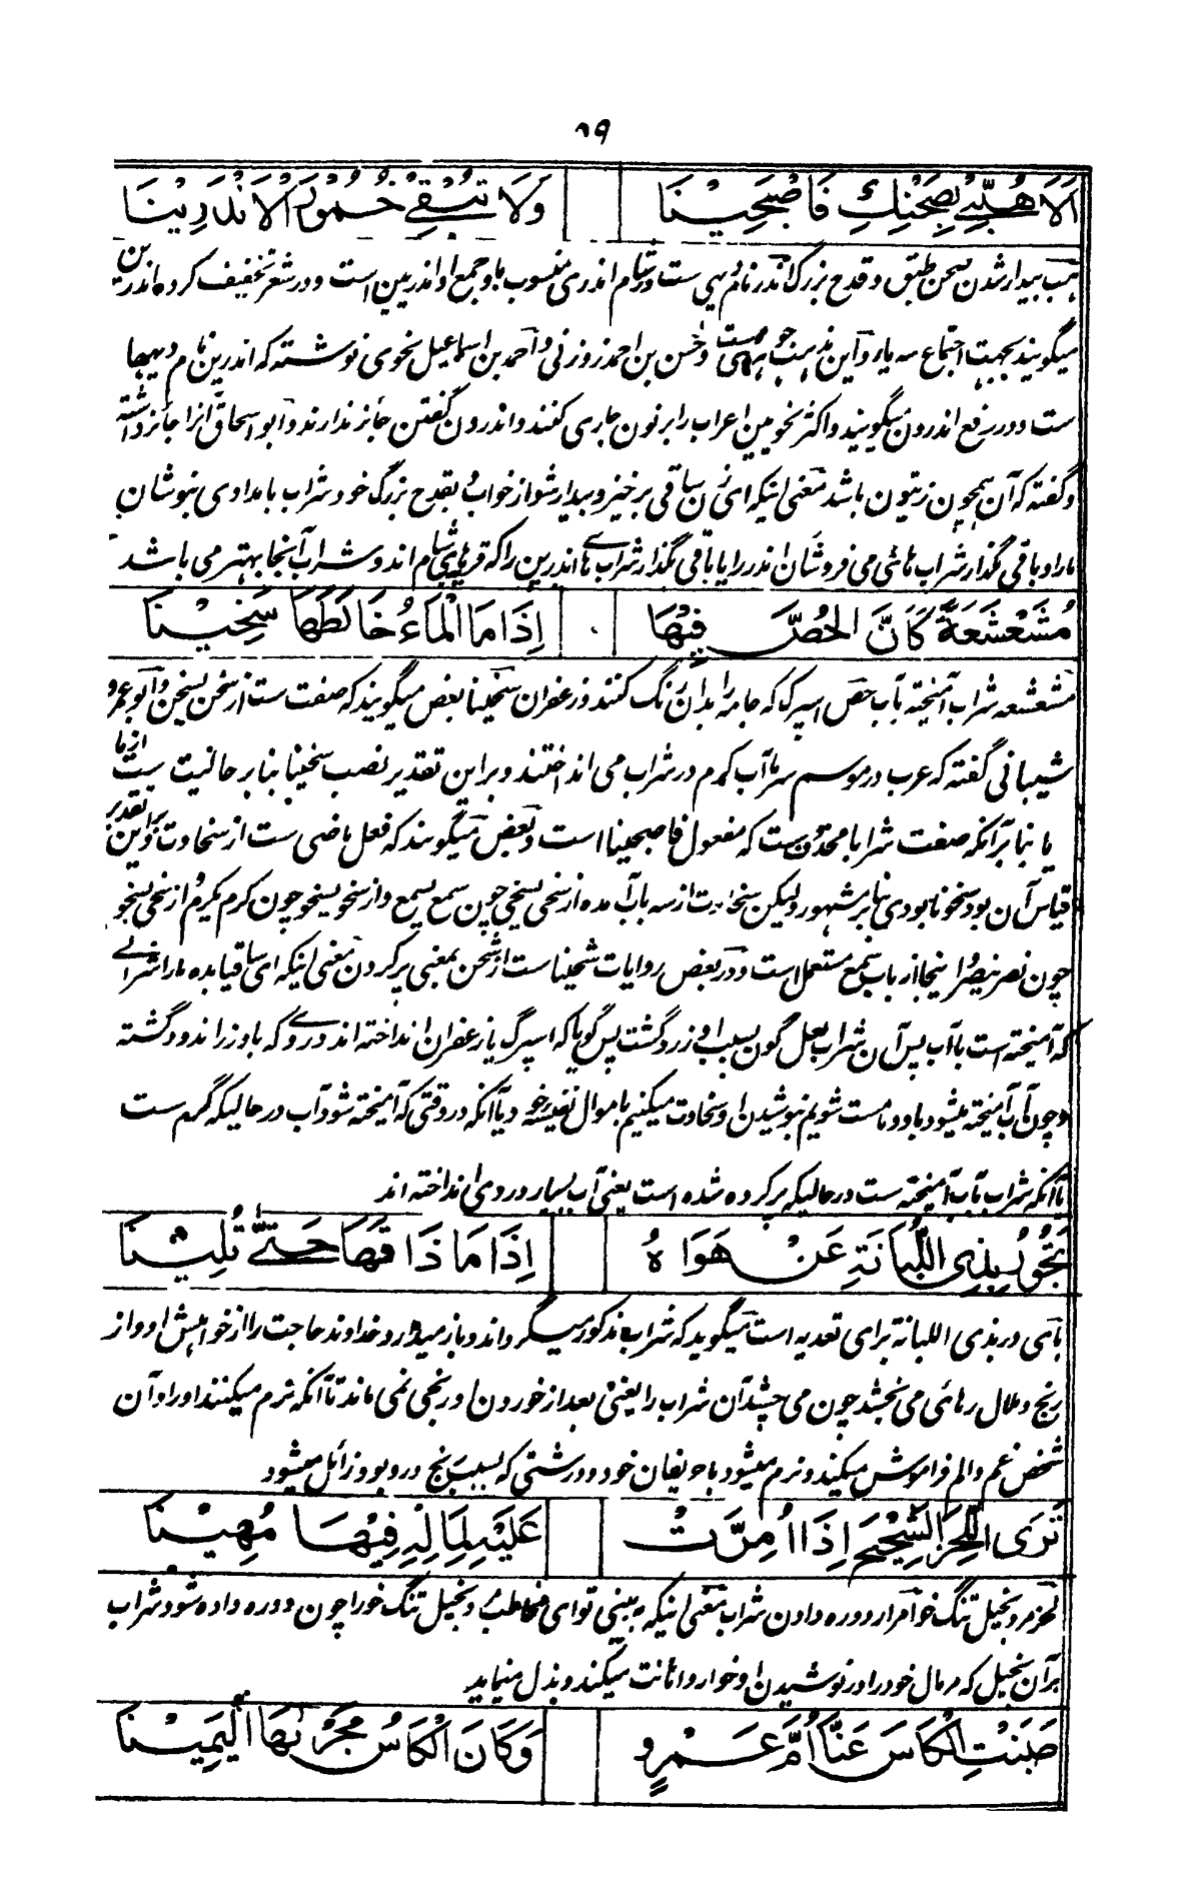 ٨٩
اَلَا هُبِّيْ بِصَحْنِكِ فَاصْبَحِيْنَا وَلَا تُبْقِيْ خُمُوْرَ الْاَنْدَرِيْنَا
هب بیدار شدن صحن طبق و قدح بزرگ اندر نام دیهی ست در شام اندری منسوب باو جمع او اندرین است و در شعر تخفیف کرده اندرین
میگویند بجهت اجتماع سه یا و این مذهب جوهری ست و حسن بن احمد زوزنی و احمد بن اسماعیل نحوی نوشته که اندرین نام دیهها
ست و در رفع اندرون میگویند و اکثر نحویین اعراب را بر نون جاری کنند و اندرون گفتن جائز ندارند و ابو اسحاق آنرا جائز داشته
و گفته که آن همچون زیتون باشد معنی اینکه ای زن ساقی برخیز و بیدار شو از خواب بقدح بزرگ خود شراب بامدادی بنوشان
مارا و باقی مگذار شراب هائی می فروشان اندر را یا باقی مگذار شرابهای اندرین را که قریهای شام اند و شراب آنجا بهتر می باشد
مُشَعْشَعَةً كَاَنَّ الْحُصَّ فِيْهَا اِذَا مَا الْمَاءُ خَالَطَهَا سَخِيْنَا
مشعشعه شراب آمیخته بآب حص اسپرک که جامه را بدان رنگ کنند و زعفران سخینا بعض میگویند که صفت ست از سخن یسخن و ابو عمرو
شیبانی گفته که عرب در موسم سرما آب گرم در شراب می انداختند و براین تقدیر نصب سخینا بنا بر حالیت ست از ما
یا بنا بر آنکه صفت شرابا محذوف ست که مفعول فاصبحینا است و بعض میگویند که فعل ماضی ست از سخاوت و براین تقدیر
قیاس آن بود سخونا بودی بنا بر مشهور ولیکن سخاوت از سه باب آمده از سخی یسخی چون سمع یسمع و از سخو یسخو چون کرم یکرم و از سخی یسخو
چون نصر ینصر و اینجا از باب سمع مستعمل است و در بعض روایات شحینا ست از شحن بمعنی پر کردن معنی اینکه ای ساقیا بده مارا شرابے
که آمیخته است بآب پس آن شراب لعل گون بسبب او زرد گشت پس گویا که اسپرگ یا زعفران انداخته اند در وے که باو زراندود گشته
و چون بآب آمیخته میشود باو و ما مست شویم بنوشیدن او سخاوت میکنیم باموال نفیسه خود یا آنکه در وقتی که آمیخته شود آب در حالیکه گرم ست
یا آنکه شراب بآب آمیخته ست در حالیکه پر کرده شده است یعنی آب بسیار در وی انداخته اند
تَجُوْرُ بِذِى اللُّبَانَةِ عَنْ هَوَاهُ اِذَا مَا ذَاقَهَا حَتّٰى تُلِيْنَا
بای در بذی اللبانة برای تعدیه است میگوید که شراب مذکور میگرداند و باز میدارد خداوند حاجت را از خواهش او و از
رنج و ملال رهائی می بخشد چون می چشد آن شراب را یعنی بعد از خوردن او رنجی نمی ماند تا آنکه نرم میکنند او را و آن
شخص غم و الم فراموش میکند و نرم میشود با حریفان خود و درشتی که بسبب رنج در و بود زائل میشود
تَرَى اللَّحِزَ الشَّحِيْحَ اِذَا اُمِرَّتْ عَلَيْهِ لِمَالِهٖ فِيْهَا مُهِيْنَا
لحز مرد بخیل تنگ خو امرار دوره دادن شراب معنی اینکه به بینی تو ای مخاطب و بخیل تنگ خو را چون دوره داده شود شراب
بر آن بخیل که مر مال خود را در نوشیدن او خوار و اهانت میکند و بذل مینماید
صَبَنْتِ الْكَاْسَ عَنَّا اُمَّ عَمْرٍو وَكَانَ الْكَاْسُ مَجْرٰىهَا الْيَمِيْنَا